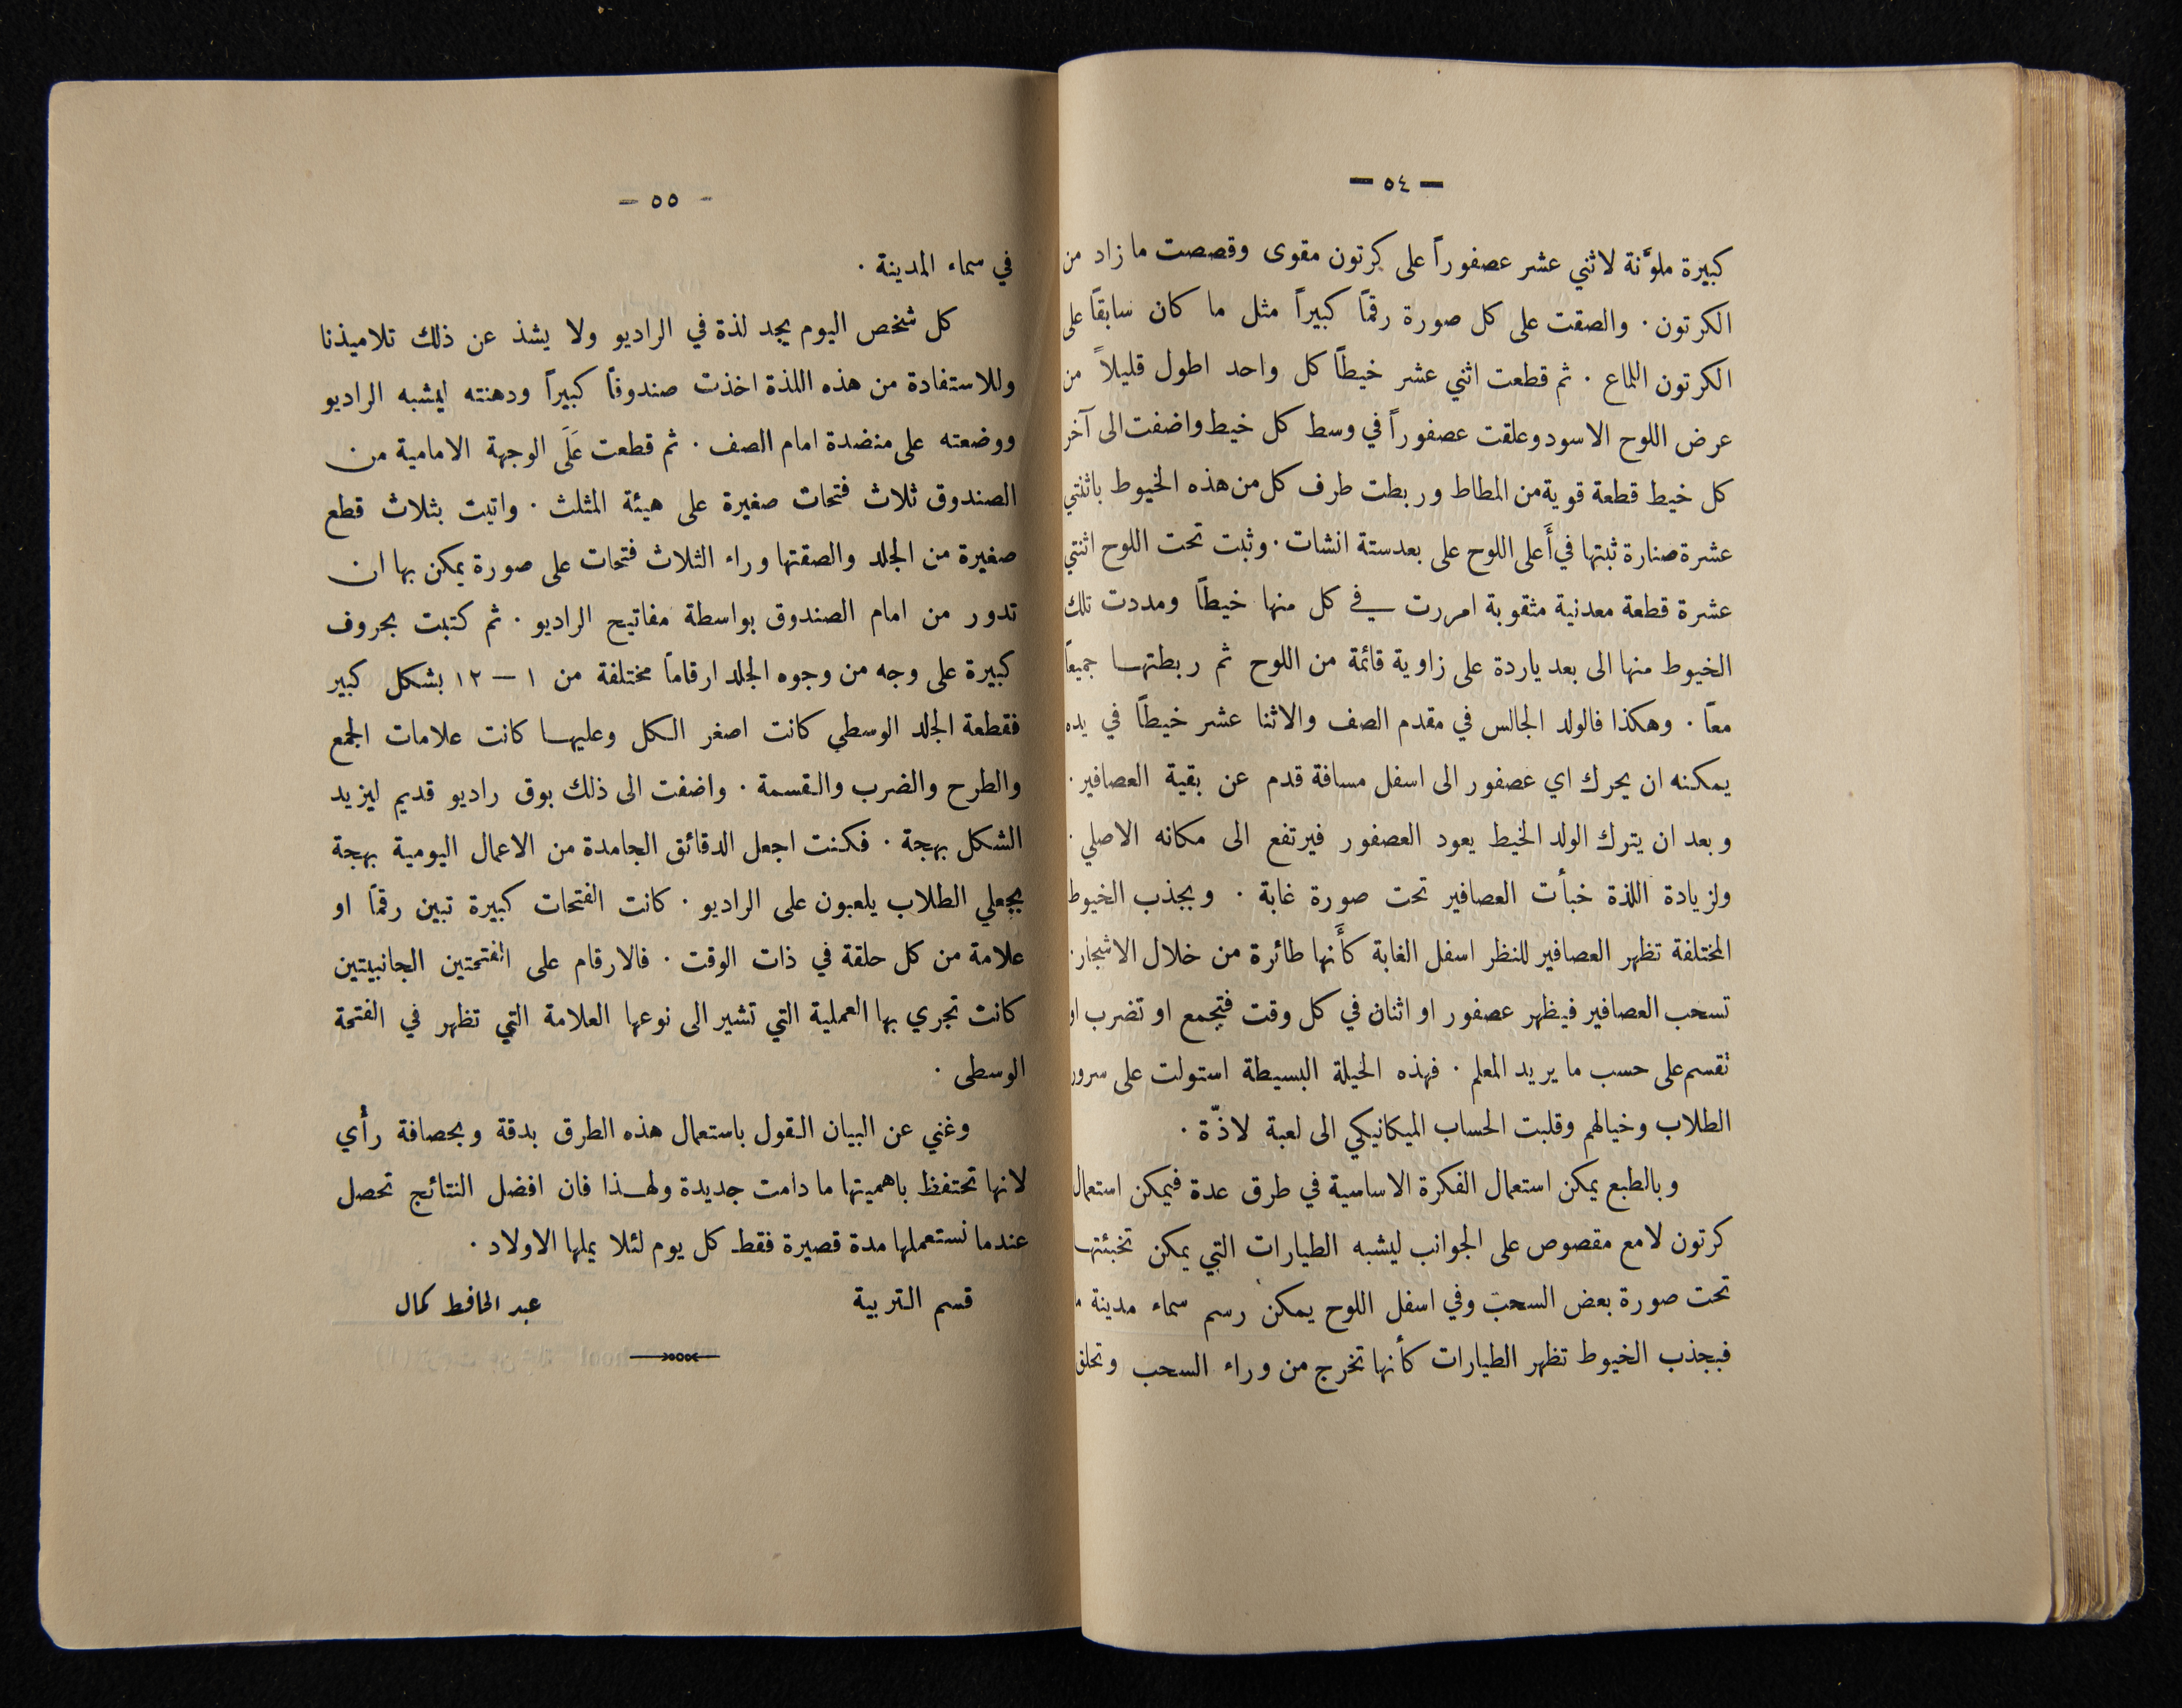 — ٥٤ —
كبيرة ملوَّنة لاثني عشر عصفوراً على كرتون مقوى وقصصت ما زاد من
الكرتون . والصقت على كل صورة رقمًا كبيراً مثل ما كان سابقًا على
الكرتون اللماع . ثم قطعت اثني عشر خيطًا كل واحد اطول قليلاً من
عرض اللوح الاسود وعلقت عصفوراً في وسط كل خيط واضفت الى آخر
كل خيط قطعة قوية من المطاط وربطت طرف كل من هذه الخيوط باثنتي
عشرة صنارة ثبتها في أَعلى اللوح على بعد ستة انشات . وثبت تحت اللوح اثنتي
عشرة قطعة معدنية مثقوبة امررت في كل منها خيطًا ومددت تلك
الخيوط منها الى بعد ياردة على زاوية قائمة من اللوح ثم ربطتها جميعًا
معًا . وهكذا فالولد الجالس في مقدم الصف والاثنا عشر خيطًا في يده
يمكنه ان يحرك اي عصفور الى اسفل مسافة قدم عن بقية العصافير .
وبعد ان يترك الولد الخيط يعود العصفور فيرتفع الى مكانه الاصلي .
ولزيادة اللذة خبأت العصافير تحت صورة غابة . وبجذب الخيوط
المختلفة تظهر العصافير للنظر اسفل الغابة كأَنها طائرة من خلال الاشجار .
تسحب العصافير فيظهر عصفور او اثنان في كل وقت فتجمع او تضرب او
تقسم على حسب ما يريد المعلم . فهذه الحيلة البسيطة استولت على سرور
الطلاب وخيالهم وقلبت الحساب الميكانيكي الى لعبة لاذّة .
وبالطبع يمكن استعمال الفكرة الاساسية في طرق عدة فيمكن استعمال
كرتون لامع مقصوص على الجوانب ليشبه الطيارات التي يمكن تخبئتها
تحت صورة بعض السحب وفي اسفل اللوح يمكن رسم سماء مدينة
فبجذب الخيوط تظهر الطيارات كأنها تخرج من وراء السحب وتحلق
- ٥٥ -
في سماء المدينة .
كل شخص اليوم يجد لذة في الراديو ولا يشذ عن ذلك تلاميذنا
وللاستفادة من هذه اللذة اخذت صندوقًا كبيراً ودهنته ليشبه الراديو
ووضعته على منضدة امام الصف . ثم قطعت عَلَى الوجهة الامامية من
الصندوق ثلاث فتحات صغيرة على هيئة المثلث . واتيت بثلاث قطع
صغيرة من الجلد والصقتها وراء الثلاث فتحات على صورة يمكن بها ان
تدور من امام الصندوق بواسطة مفاتيح الراديو . ثم كتبت بحروف
كبيرة على وجه من وجوه الجلد ارقامًا مختلفة من ١ — ١٢ بشكل كبير
فقطعة الجلد الوسطي كانت اصغر الكل وعليها كانت علامات الجمع
والطرح والضرب والقسمة . واضفت الى ذلك بوق راديو قديم ليزيد
الشكل بهجة . فكنت اجعل الدقائق الجامدة من الاعمال اليومية بهجة
بجعلي الطلاب يلعبون على الراديو . كانت الفتحات كبيرة تبين رقمًا او
علامة من كل حلقة في ذات الوقت . فالارقام على الفتحتين الجانبيتين
كانت تجري بها العملية التي تشير الى نوعها العلامة التي تظهر في الفتحة
الوسطى .
وغني عن البيان القول باستعمال هذه الطرق بدقة وبحصافة رأي
لانها تحتفظ باهميتها ما دامت جديدة ولهذا فان افضل النتائج تحصل
عندما نستعملها مدة قصيرة فقط كل يوم لئلا يملها الاولاد .
قسم التربية عبد الحافظ كمال